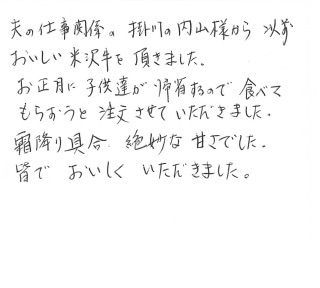 夫の仕事関係の 掛川の内山様から 以前
おいしい 米沢牛を 頂きました.
お正月に 子供達が 帰省するので 食べて
もらおうと 注文させていただきました.
霜降り具合 絶妙な 甘さでした.
皆で おいしく いただきました。